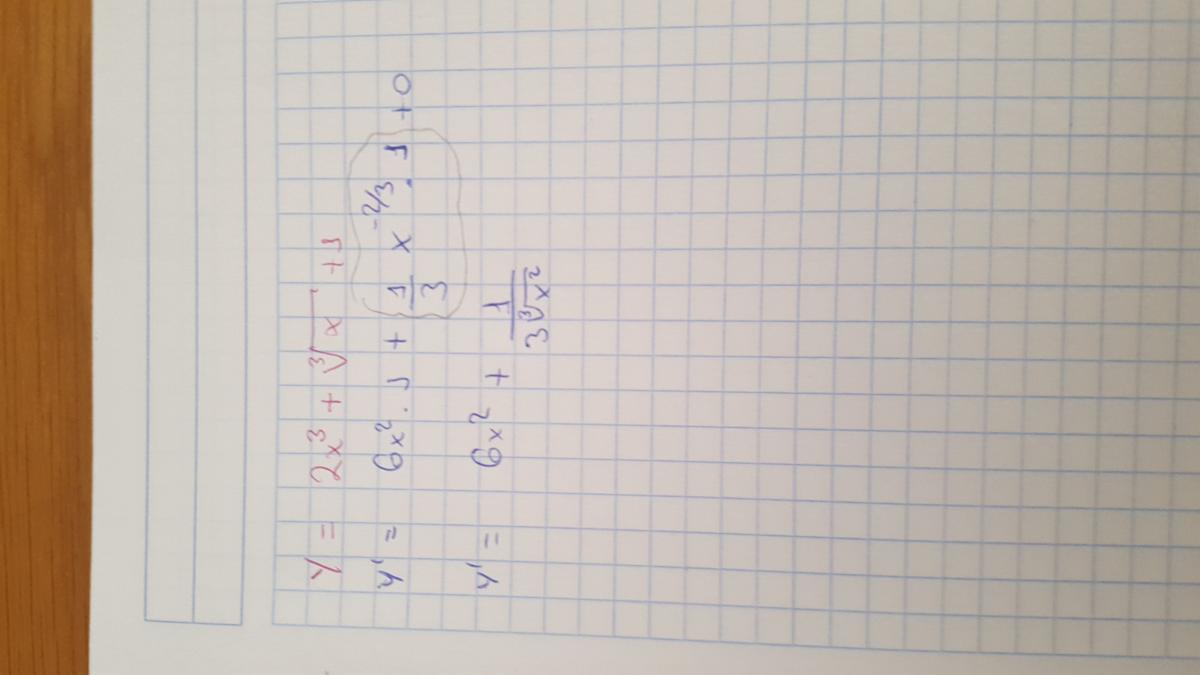 y = 2x³ + ∛x + 1
y' = 6x² · 1 + 1/3 x^(-2/3) · 1 + 0
y' = 6x² + 1/(3∛x²)